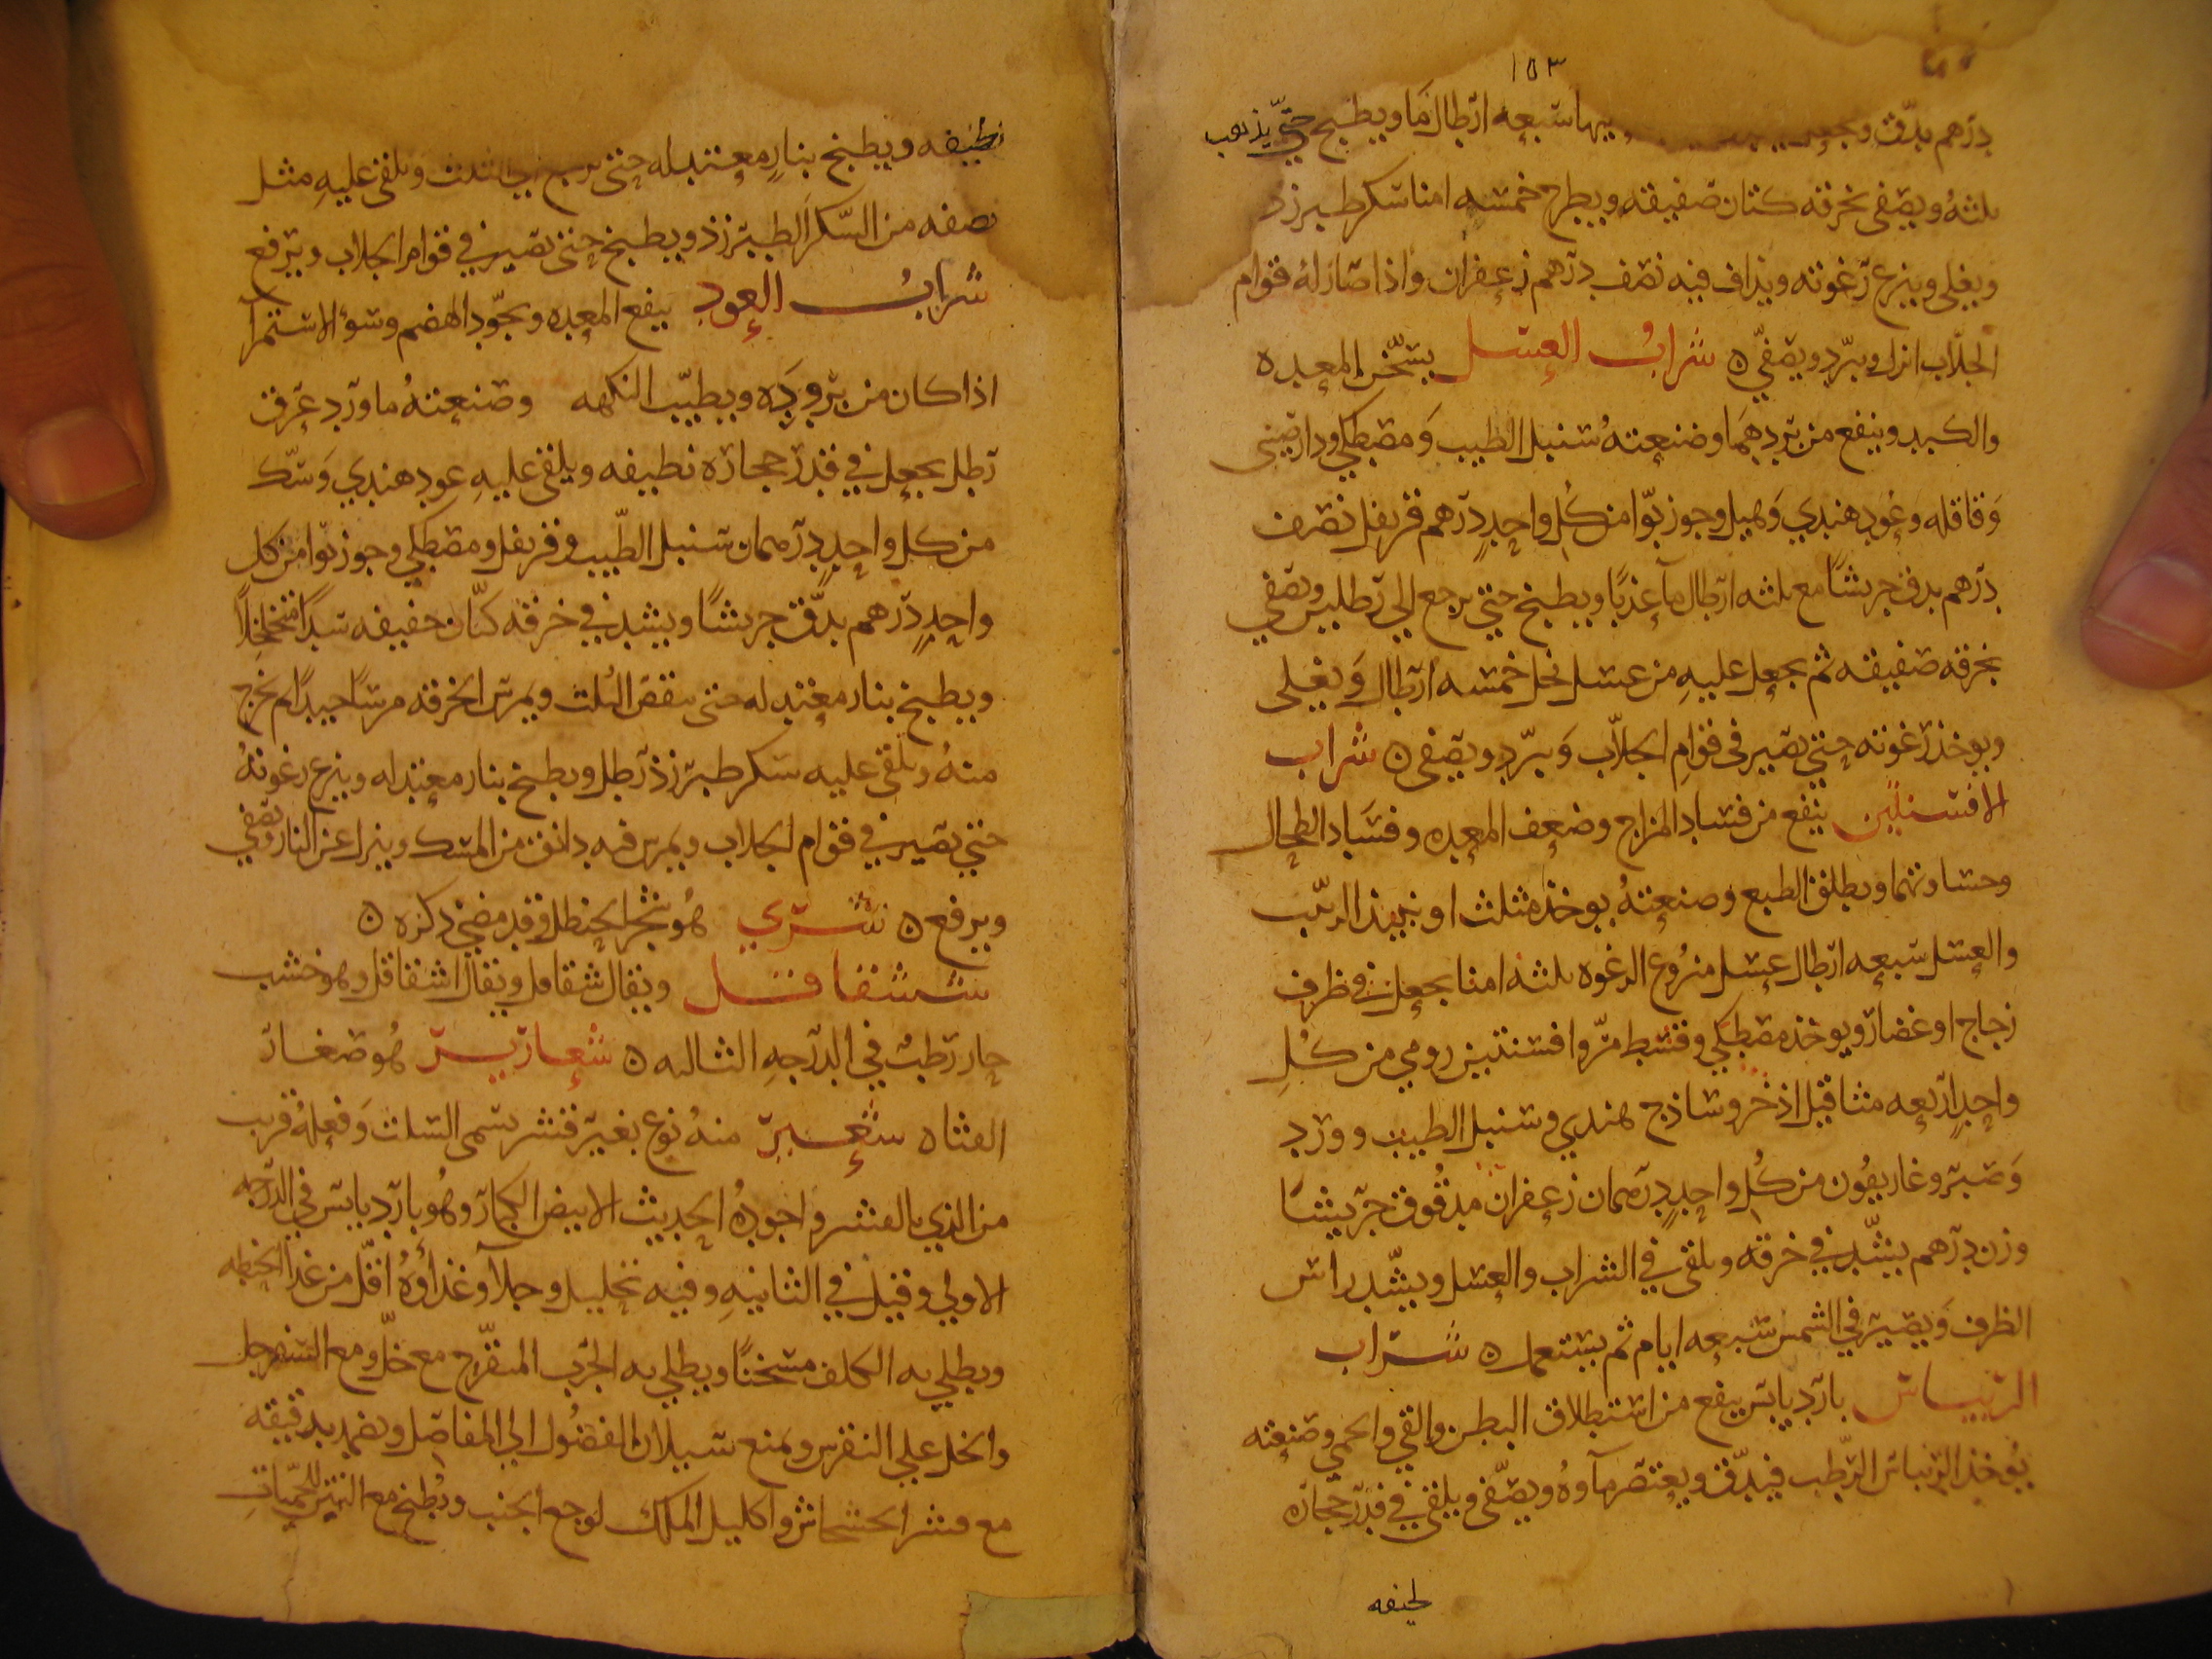 ١٥٣
درهم يدق ويجعل فيها سبعه ارطال ما ويطبخ حتى يذهب
ثلثه ويصفى بخرقه كتان صفيقه ويطرح خمسه امنا سكر طبرزد
ويغلى وينزع رغوته ويذاف فيه نصف درهم زعفران واذا صار له قوام
الجلاب انزل وبرد ويصفى ه شراب العسل يسخن المعده
والكبد وينفع من بردهما وصنعته سنبل الطيب ومصطكي ودارصيني
وقاقله وعود هندي وهيل وجوزبوا من كل واحد درهم قرنفل نصف
درهم يدق جريشا مع ثلثه ارطال ما عذبا ويطبخ حتى يرجع الي رطلين ويصفي
بخرقه صفيقه ثم يجعل عليه من عسل نحل خمسه ارطال ويغلى
ويوخذ رغوته حتى يصير في قوام الجلاب ويبرد ويصفى ه شراب
الافسنتين ينفع من فساد المزاج وضعف المعده وفساد الطحال
وحساوتهما ويطلق الطبع وصنعته يوخذ مثلث او نبيذ الزبيب
والعسل سبعه ارطال عسل منزوع الرغوه ثلثه امنا يجعل في ظرف
زجاج او غضار ويوخذ مصطكي وقسط مر وافسنتين رومي من كل
واحد اربعه مثاقيل اذخر وساذج هندي وسنبل الطيب وورد
وصبر وغاريقون من كل واحد درهمان زعفران مدقوق جريشا
وزن درهم يشد في خرقه ويلقى في الشراب والعسل ويشد راس
الظرف ويصير في الشمس سبعه ايام ثم يستعمل ه شراب
الريباس بارد يابس ينفع من استطلاق البطن والقي والحمى وصنعته
يوخذ الريباس الرطب فيدق ويعتصر ماوه ويصفى ويلقى في قدر حجاره
نظيفه
نظيفه ويطبخ بنار معتدله حتى يرجع الي الثلث ويلقى عليه مثل
نصفه من السكر الطبرزد ويطبخ حتى يصير في قوام الجلاب ويرفع
شراب العود ينفع المعده ويجود الهضم وسوء الاستمرا
اذا كان من بروده ويطيب النكهه وصنعته ما ورد عرق
رطل يجعل في قدر حجاره نظيفه ويلقى عليه عود هندي وسك
من كل واحد درهمان سنبل الطيب وقرنفل ومصطكي وجوزبوا من كل
واحد درهم يدق جريشا ويشد في خرقه كتان خفيفه شدا متخلخلا
ويطبخ بنار معتدله حتى ينقص الثلث ويمرس الخرقه مرسا جيدا ثم يخرج
منه ويلقى عليه سكر طبرزد رطل ويطبخ بنار معتدله وينزع رغوته
حتي يصير في قوام الجلاب ويمرس فيه دانق من المسك وينزل عن النار ويصفي
ويرفع ه شري هو شجر الحنظل وقد مضى ذكره ه
ششقاقل ويقال شقاقل ويقال اشقاقل وهو خشب
حار رطب في الدرجه الثالثه ه شعارير هو صغار
القثاء شعير منه نوع بغير قشر يسمى السلت وفعله قريب
من الذي بالقشر واجوده الحديث الابيض الكبار وهو بارد يابس في الدرجه
الاولي وقيل في الثانيه وفيه تحليل وجلا وغذاوه اقل من غذا الحنطه
ويطلي به الكلف مسخنا ويطلي به الجرب المتقرح مع خل ومع السفرجل
والخل علي النقرس ويمنع سيلان الفضول الي المفاصل ويضمد بدقيقه
مع قشر الخشخاش واكليل الملك لوجع الجنب ويطبخ مع التين للحميات